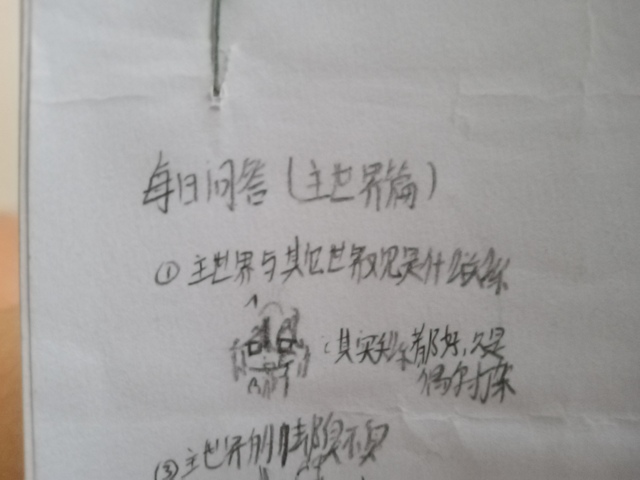 每日问答（主世界篇）
① 主世界与其它世界观是什么关系
：其实关系都好，只是
偶尔打架
③ 主世界